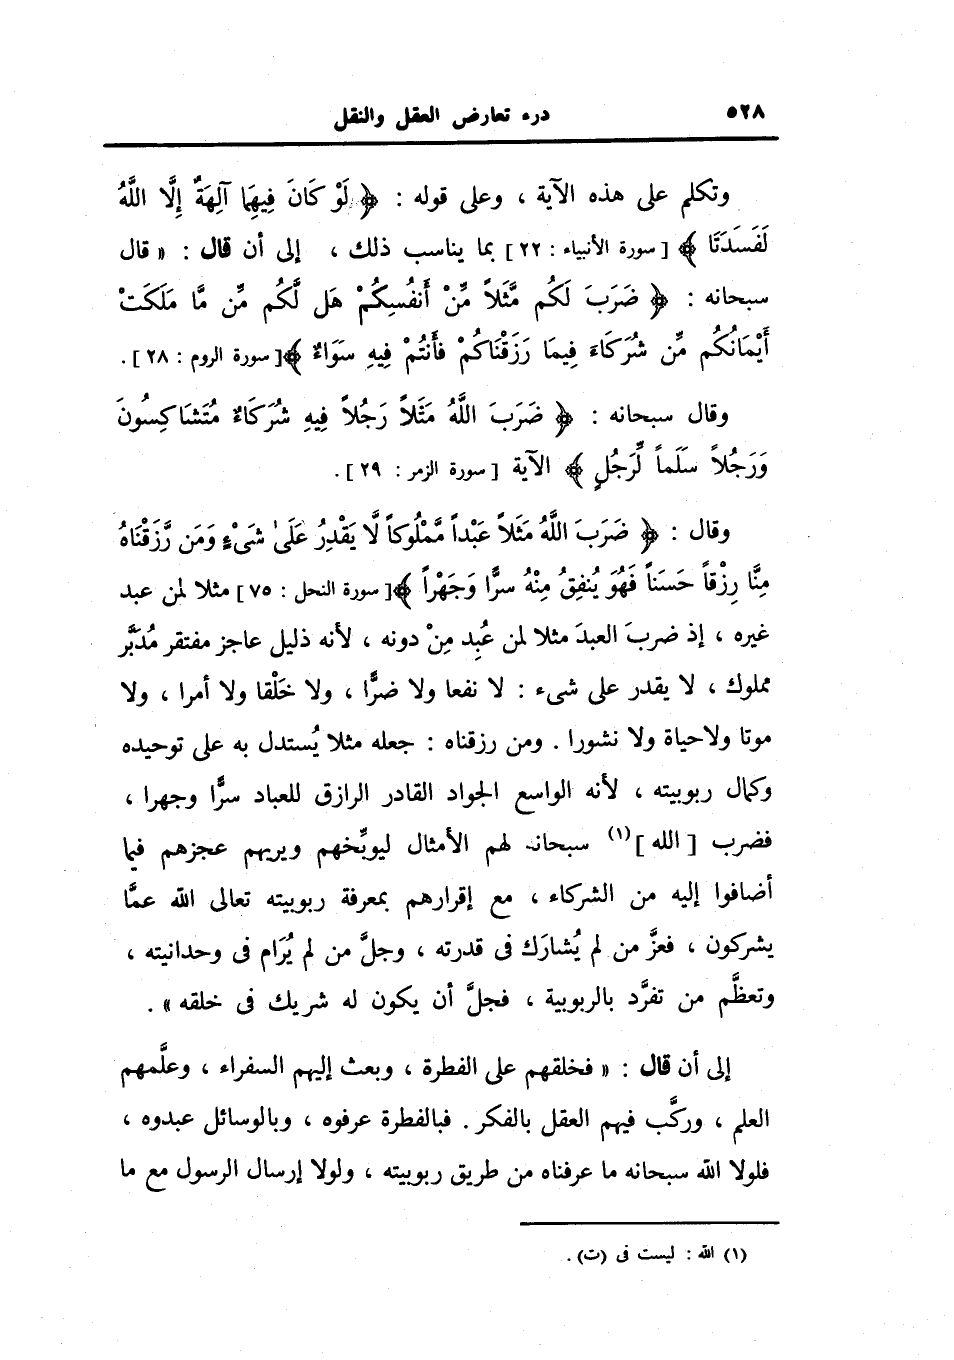 ٥٢٨ درء تعارض العقل والنقل
وتكلم على هذه الآية ، وعلى قوله : ﴿ لَوْ كَانَ فِيهِمَا آلِهَةٌ إِلَّا اللَّهُ
لَفَسَدَتَا ﴾ [ سورة الأنبياء : ٢٢ ] بما يناسب ذلك ، إلى أن قال : « قال
سبحانه : ﴿ ضَرَبَ لَكُم مَّثَلاً مِّنْ أَنفُسِكُمْ هَل لَّكُم مِّن مَّا مَلَكَتْ
أَيْمَانُكُم مِّن شُرَكَاءَ فِيمَا رَزَقْنَاكُمْ فَأَنتُمْ فِيهِ سَوَاءٌ ﴾ [ سورة الروم : ٢٨ ] .
وقال سبحانه : ﴿ ضَرَبَ اللَّهُ مَثَلاً رَجُلاً فِيهِ شُرَكَاءُ مُتَشَاكِسُونَ
وَرَجُلاً سَلَماً لِّرَجُلٍ ﴾ الآية [ سورة الزمر : ٢٩ ] .
وقال : ﴿ ضَرَبَ اللَّهُ مَثَلاً عَبْداً مَّمْلُوكاً لَّا يَقْدِرُ عَلَىٰ شَىْءٍ وَمَن رَّزَقْنَاهُ
مِنَّا رِزْقاً حَسَناً فَهُوَ يُنفِقُ مِنْهُ سرًّا وَجَهْراً ﴾ [ سورة النحل : ٧٥ ] مثلا لمن عبد
غيره ، إذ ضربَ العبدَ مثلا لمن عُبِد مِنْ دونه ، لأنه ذليل عاجز مفتقر مُدَبَّر
مملوك ، لا يقدر على شىء : لا نفعا ولا ضرًّا ، ولا خَلْقا ولا أمرا ، ولا
موتا ولاحياة ولا نشورا . ومن رزقناه : جعله مثلا يُستدل به على توحيده
وكمال ربوبيته ، لأنه الواسع الجواد القادر الرازق للعباد سرًّا وجهرا ،
فضرب [ الله ] (١) سبحانه لهم الأمثال ليوبِّخهم ويريهم عجزهم فيما
أضافوا إليه من الشركاء ، مع إقرارهم بمعرفة ربوبيته تعالى الله عمَّا
يشركون ، فعزَّ من لم يُشارَك فى قدرته ، وجلَّ من لم يُرَام فى وحدانيته ،
وتعظَّم من تفرَّد بالربوبية ، فجلَّ أن يكون له شريك فى خلقه » .
إلى أن قال : « فخلقهم على الفطرة ، وبعث إليهم السفراء ، وعلَّمهم
العلم ، وركَّب فيهم العقل بالفكر . فبالفطرة عرفوه ، وبالوسائل عبدوه ،
فلولا الله سبحانه ما عرفناه من طريق ربوبيته ، ولولا إرسال الرسول مع ما
(١) الله : ليست فى (ت) .